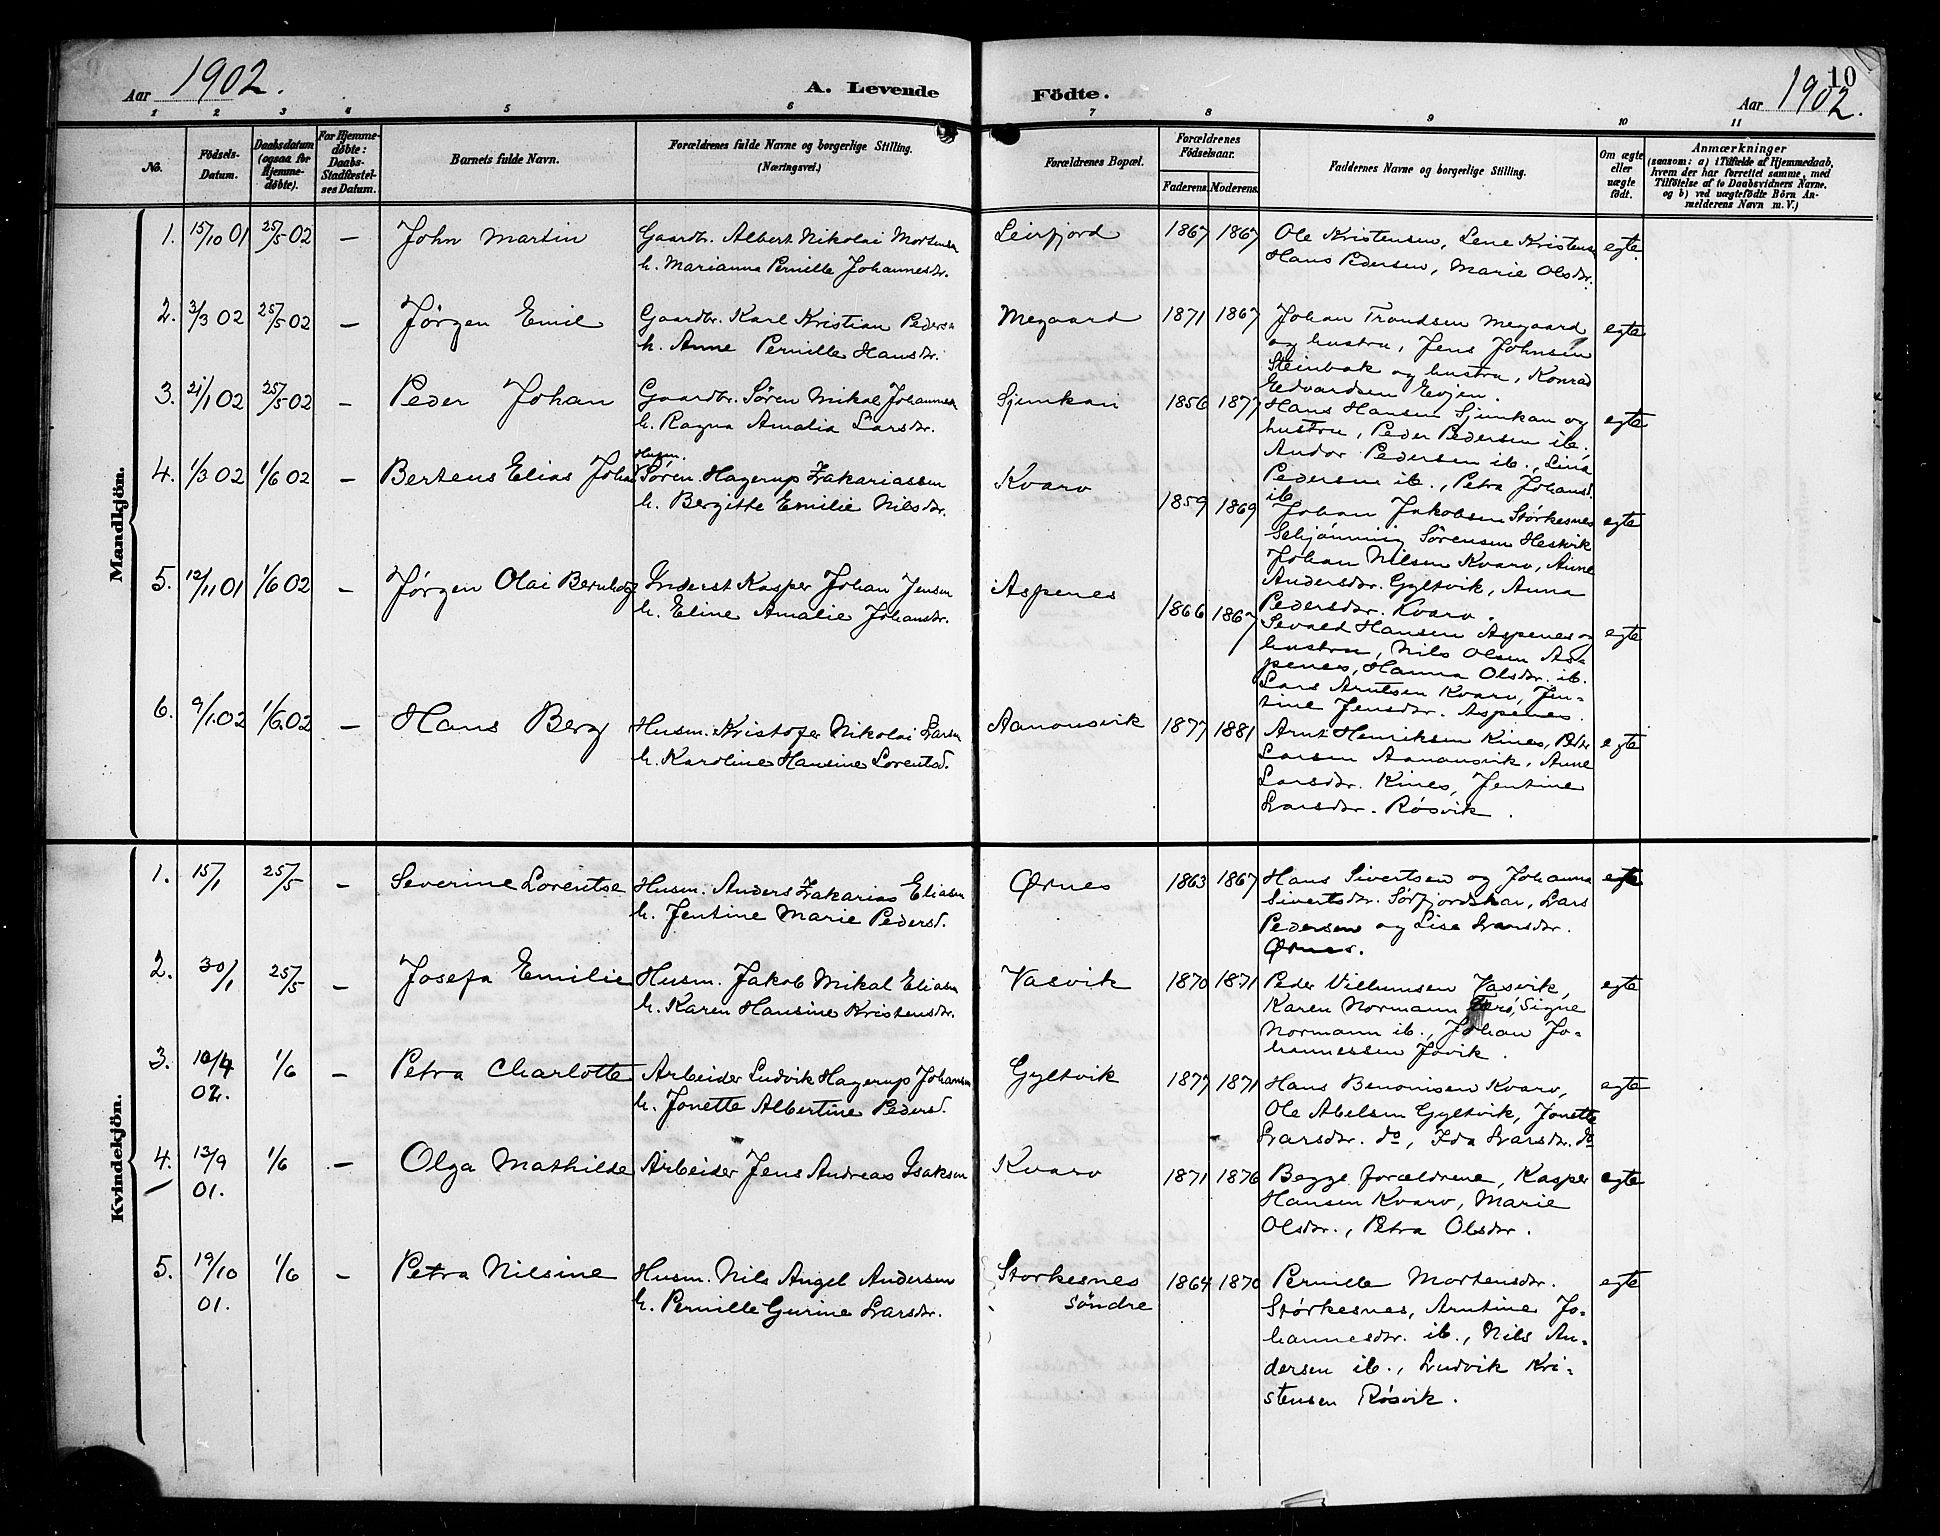 Aar 1902. A. Levende Födte. Aar 1902. 10
1 2 3 4 5 6 7 8 9 10 11
No. Födsels-Datum. Daabsdatum (ogsaa for Hjemmedöbte). For Hjemmedöbte: Daabs-Stadfæstelses Datum. Barnets fulde Navn. Forældrenes fulde Navne og borgerlige Stilling. (Næringsvei.) Forældrenes Bopæl. Forældrenes Födselsaar. Faderens. Moderens. Faddernes Navne og borgerlige Stilling. Om ægte eller uægte födt. Anmærkninger (saasom: a) i Tilfælde af Hjemmedaab, hvem der har forrettet samme, med Tilföielse af to Daabsvidners Navne. og b) ved uægtefödte Börn Anmelderens Navn m. V.)
Mandkjön.
1. 15/10 01 25/5 02 — John Martin Gaardbr. Albert Nikolai Mortensen Leirfjord 1867 1867 Ole Kristensen, Lene Kristens egte.
h. Marianna Pernille Johannesdr. Hans Pedersen, Marie Olsdr.
2. 3/3 02 25/5 02 — Jørgen Emil Gaardbr. Karl Kristian Peders. Megaard 1871 1867 Johan Trondsen Megaard egte
h. Anne Pernille Hansdr. og hustru, Jens Johnsen
Steinbak og hustru, Konrad
Edvardsen Evjen.
3. 21/1 02 25/5 02 — Peder Johan Gaardbr. Søren Mikal Johannesen Sjunkan 1856 1877 Hans Hansen Sjunkan og egte
h. Ragna Amalia Larsdr. hustru, Peder Pedersen ib.,
Andor Pedersen ib., Lina
Pedersen ib., Petra Johansd.
ib.
4. 1/3 02 1/6 02 — Bertens Elias Johan Husm. Søren Hagerup Zakariassen Kvarv 1859 1869 Johan Jakobsen Störkesnes egte
h. Bergitte Emilie Nilsdr. Schjønning Sørensen Hestvik
Johan Nilsen Kvarv, Anne
Andersdr. Gyltvik, Anna
Pedersdr. Kvarv.
5. 12/11 01 1/6 02 — Jørgen Olai Bernhog Inderst Kasper Johan Jensen Aspenes 1866 1867 Sevald Hansen Aspenes og egte
h. Eline Amalie Johansdr. hustru, Nils Olsen As-
penes, Hanna Olsdr. ib.
Lars Arntsen Kvarv, Jen-
tine Jensdr. Aspenes.
6. 9/1 02 1/6 02 — Hans Berg Husm. Kristofer Nikolai Larsen Aanonsvik 1877 1881 Arnt Henriksen Kines, Peder egte
h. Karoline Hansine Lorentsd. Larsen Aanonsvik, Anne
Larsdr. Kines, Jentine
Larsdr. Røsvik.
Kvindekjön.
1. 15/1 25/5 — Severine Lorentse Husm. Anders Zakarias Eliasen Ørnes 1863 1867 Hans Sivertsen og Johanna egte
h. Jentine Marie Pedersd. Sivertsdr. Sørfjordskar, Lars
Pedersen og Lise Larsdr.
Ørnes.
2. 30/1 25/5 — Josefa Emilie Husm. Jakob Mikal Eliasen Vasvik 1870 1871 Peder Villumsen Vasvik, egte
h. Karen Hansine Kristensdr. Karen Normann Færø, Signe
Normann ib., Johan Jo-
hannessen Jøvik.
3. 10/4 02. 1/6 — Petra Charlotte Arbeider Ludvik Hagerup Johansen Gyltvik 1877 1871 Hans Benonisen Kvarv, egte
h. Jonette Albertine Pedersd. Ole Abelsen Gyltvik, Jonette
Larsdr. do, Ida Larsdr. do
4. 13/9 01. 1/6 — Olga Mathilde Arbeider Jens Andreas Isaksen Kvarv 1871 1876 Begge forældrene, Kasper egte
Hansen Kvarv, Marie
Olsdr., Petra Olsdr.
5. 19/10 01. 1/6 — Petra Nilsine Husm. Nils Angel Andersen Storkesnes söndre 1864 1870 Pernille Mortensdr. egte
h. Pernille Gurine Larsdr. Störkesnes, Arntine Jo-
hannesdr. ib., Nils An-
dersen ib., Ludvik Kri-
stensen Røsvik.